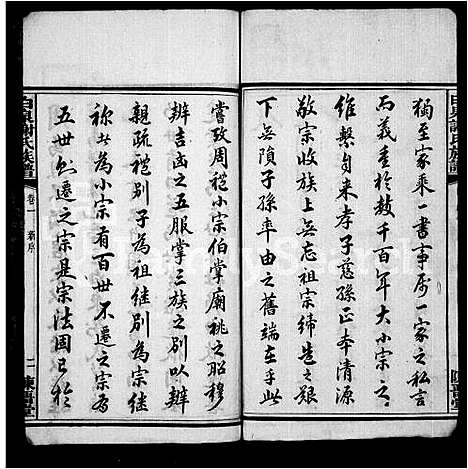 獨至家乘一書事屬一家之私言
而義重於數千百年大小宗之
維繫自來孝子慈孫正本清源
敬宗收族上無忘祖宗締造之艱
下無隕子孫率由之舊端在乎此
嘗攷周禮小宗伯掌廟祧之昭穆
辨吉凶之五服掌三族之別以辨
親疏禮別子為祖繼別為宗繼
祢者為小宗有百世不遷之宗有
五世則遷之宗是宗法固已於
白泉謝氏族譜
卷一
新序
二